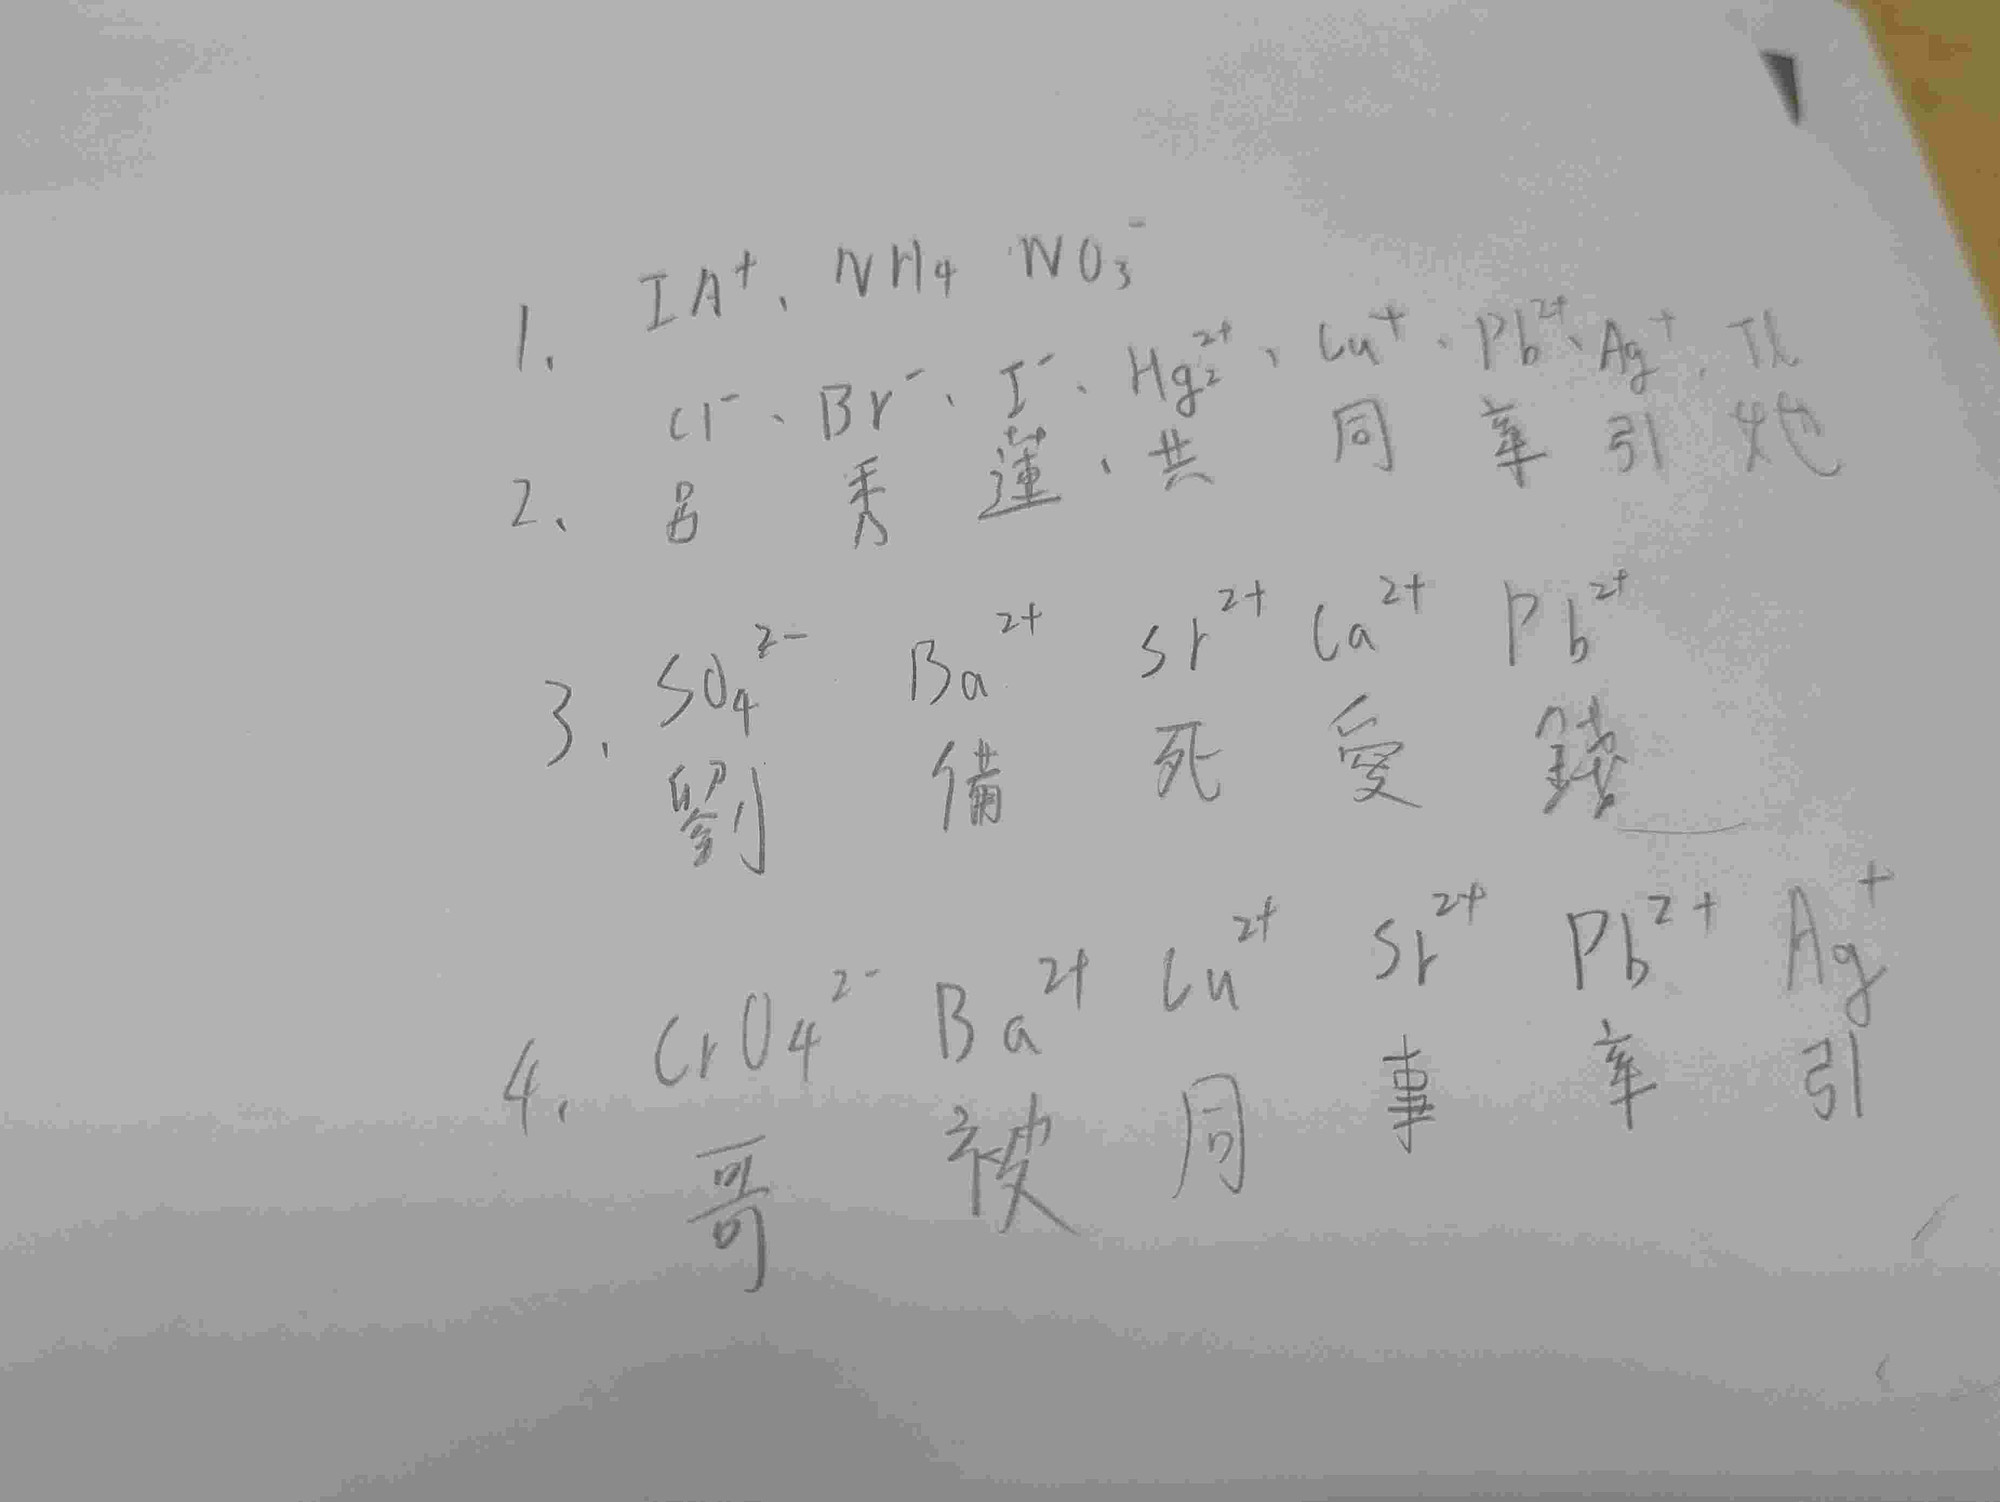 1. IA⁺、NH₄ NO₃⁻
2. Cl⁻、Br⁻、I⁻、Hg₂²⁺、Cu⁺、Pb²⁺、Ag⁺、Tl
呂 秀 蓮、共 同 牽 引 她
3. SO₄²⁻ Ba²⁺ Sr²⁺ Ca²⁺ Pb²⁺
劉 備 死 愛 錢
4. CrO₄²⁻ Ba²⁺ Cu²⁺ Sr²⁺ Pb²⁺ Ag⁺
哥 被 同 事 牽 引